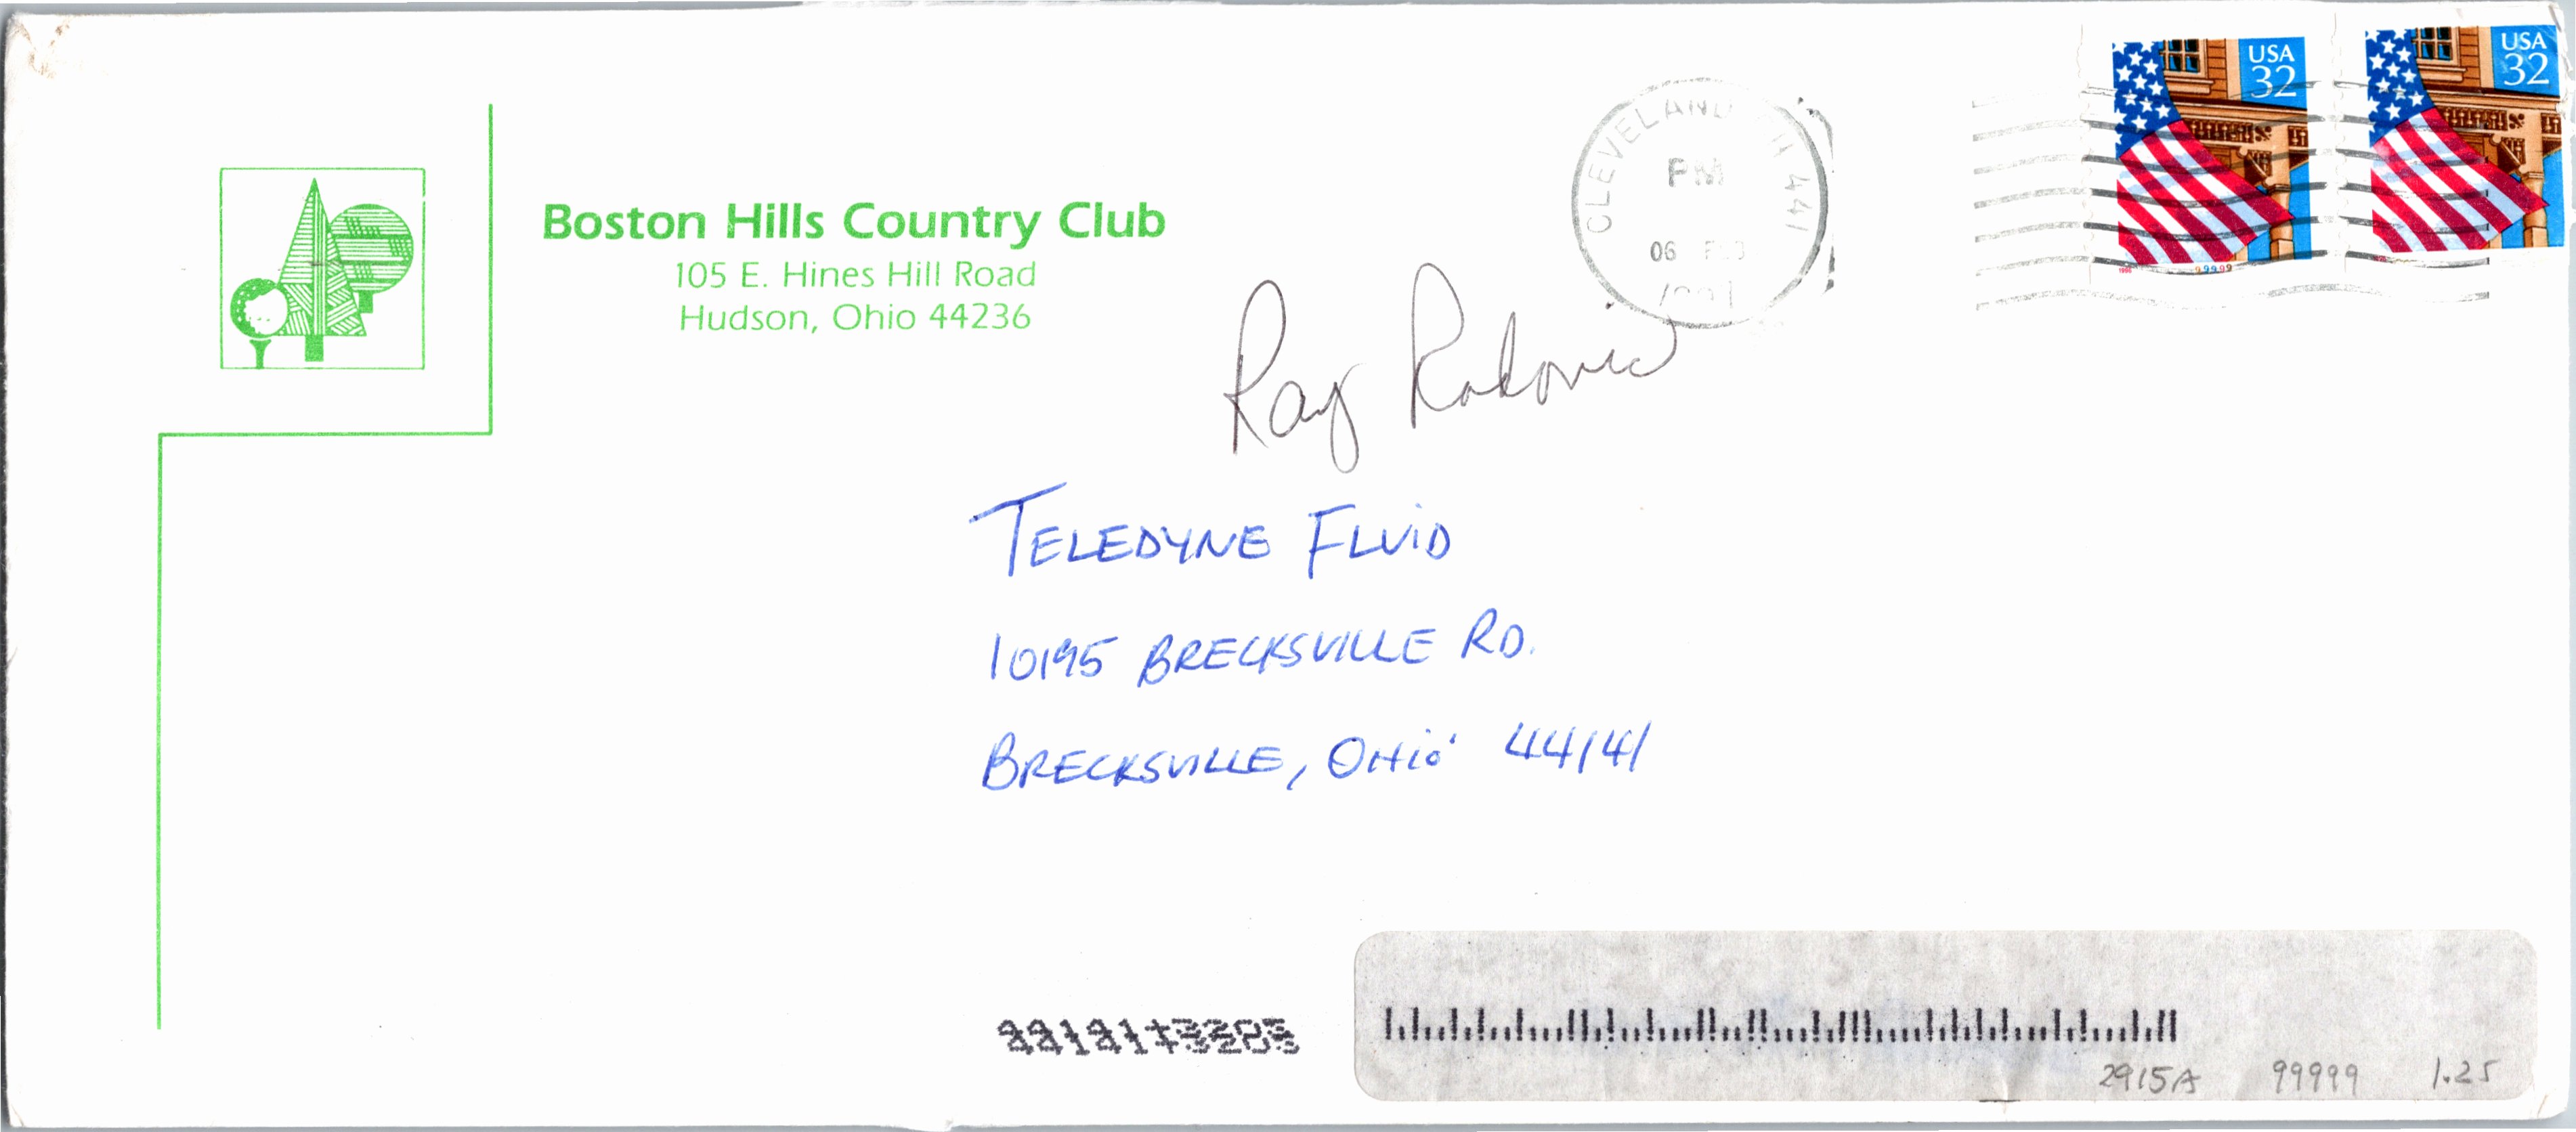 Boston Hills Country Club
105 E. Hines Hill Road
Hudson, Ohio 44236
CLEVELAND OH 441
PM
06 FEB
USA
32
USA
32
1996
99999
Ray
TELEDYNE FLUID
10195 BRECKSVILLE RD.
BRECKSVILLE, OHIO 44141
44141+3203
2915A 99999 1.25